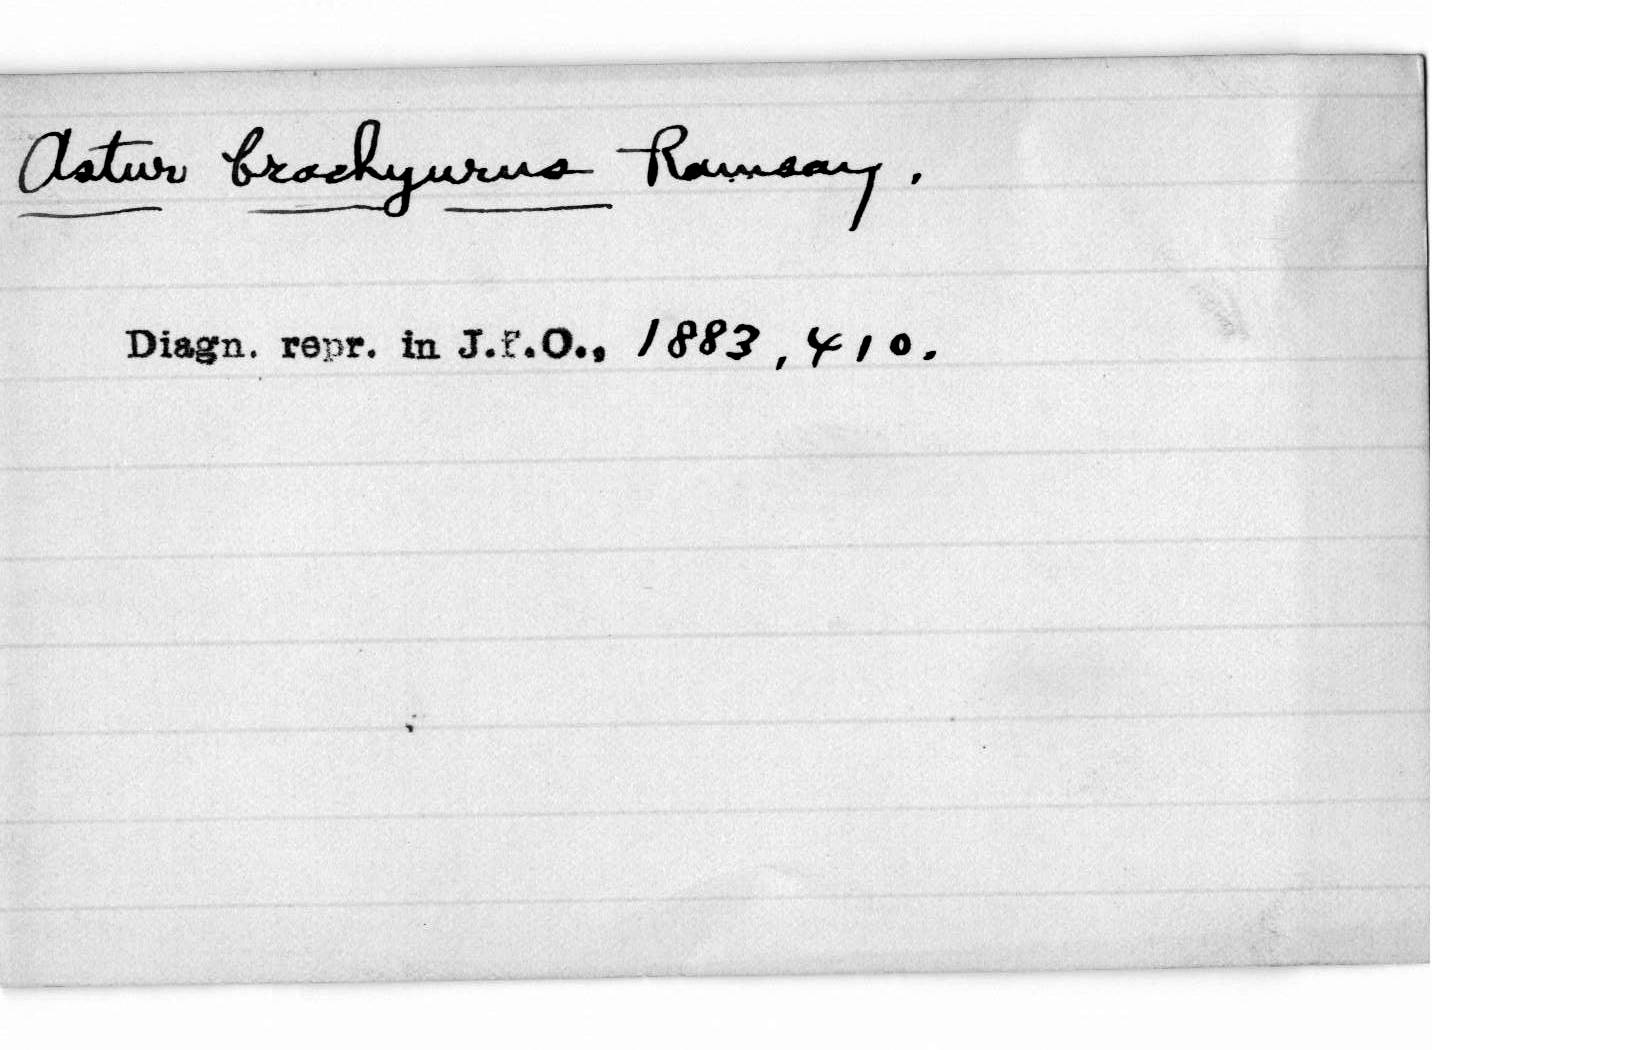 Astur brachyurus Ramsay.
Diagn. repr. in J.f.O., 1883, 410.